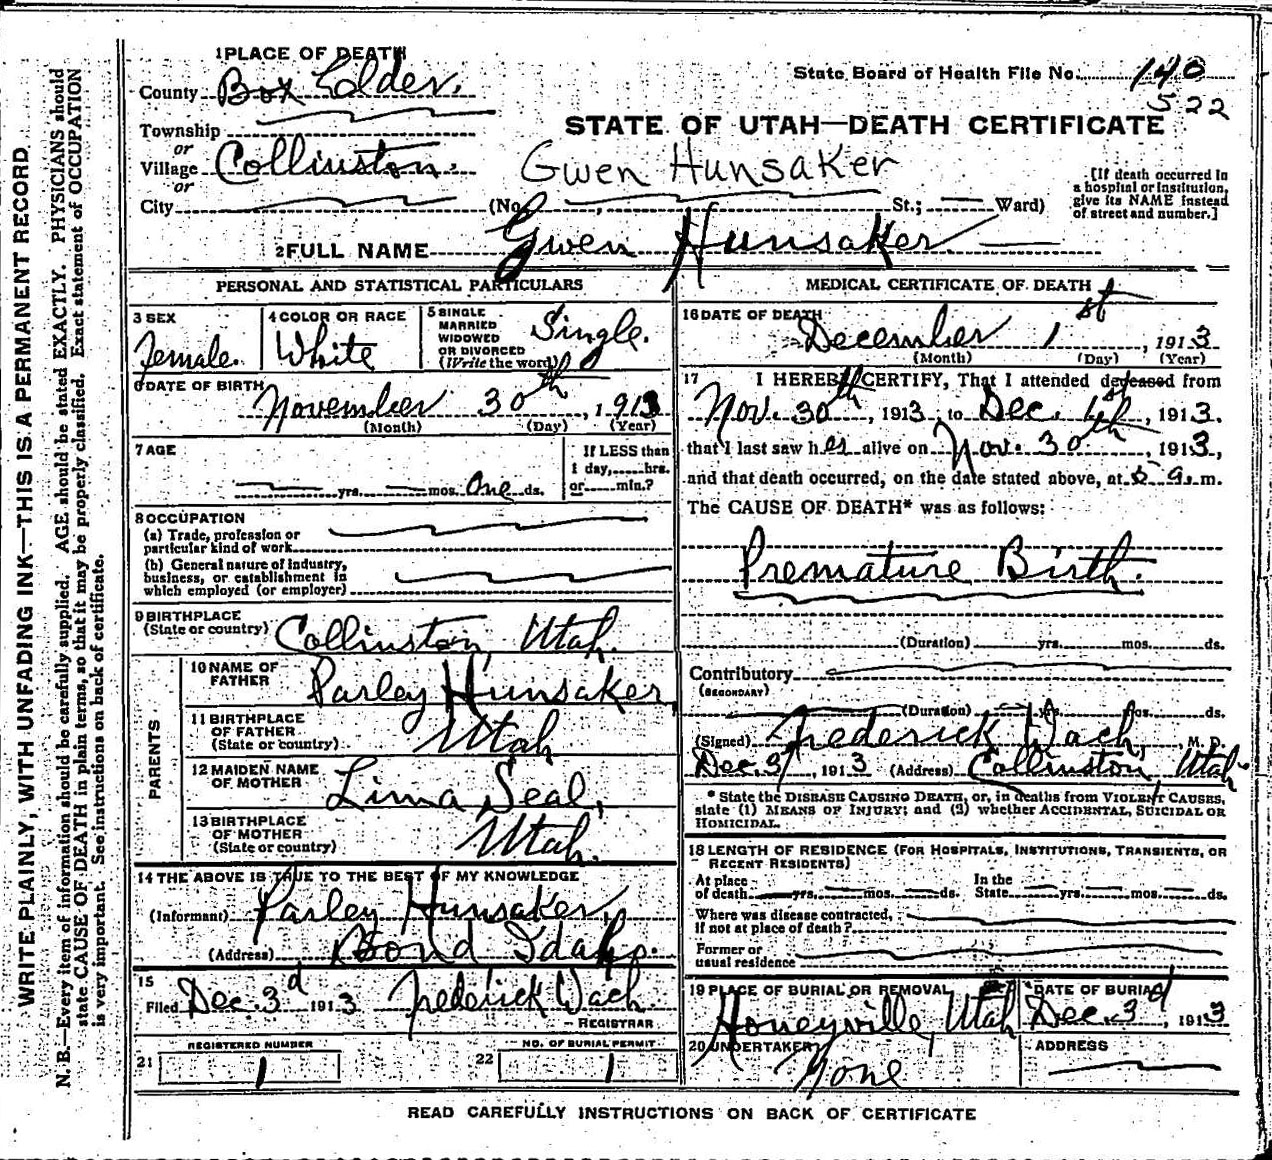 WRITE PLAINLY, WITH UNFADING INK—THIS IS A PERMANENT RECORD
N.B.—Every item of information should be carefully supplied. AGE should be stated EXACTLY. PHYSICIANS should
state CAUSE OF DEATH in plain terms, so that it may be properly classified. Exact statement of OCCUPATION
is very important. See instructions on back of certificate.
1 PLACE OF DEATH
State Board of Health File No. 140
522
County Box Elder.
STATE OF UTAH—DEATH CERTIFICATE
Township
or
Village Collinston.
or
Gwen Hunsaker
[If death occurred in
a hospital or institution,
give its NAME instead
of street and number.]
City (No. St.; Ward)
2 FULL NAME Gwen Hunsaker
PERSONAL AND STATISTICAL PARTICULARS
3 SEX
Female.
4 COLOR OR RACE
White
5 SINGLE
MARRIED
WIDOWED
OR DIVORCED
(Write the word)
Single.
6 DATE OF BIRTH
November 30th, 1913
(Month) (Day) (Year)
7 AGE
yrs. mos. One ds.
If LESS than
1 day, hrs.
or min.?
8 OCCUPATION
(a) Trade, profession or
particular kind of work
(b) General nature of industry,
business, or establishment in
which employed (or employer)
9 BIRTHPLACE
(State or country) Collinston, Utah.
PARENTS
10 NAME OF
FATHER Parley Hunsaker,
11 BIRTHPLACE
OF FATHER
(State or country) Utah
12 MAIDEN NAME
OF MOTHER Lima Seal,
13 BIRTHPLACE
OF MOTHER
(State or country) Utah.
14 THE ABOVE IS TRUE TO THE BEST OF MY KNOWLEDGE
(Informant) Parley Hunsaker,
(Address) Bond Idaho.
15
Filed Dec. 3d 1913 Frederick Wach.
REGISTRAR
21 REGISTERED NUMBER
1
22 NO. OF BURIAL PERMIT
1
MEDICAL CERTIFICATE OF DEATH
16 DATE OF DEATH
December 1st, 1913
(Month) (Day) (Year)
17 I HEREBY CERTIFY, That I attended deceased from
Nov. 30th, 1913, to Dec. 1st, 1913.
that I last saw her alive on Nov. 30th, 1913,
and that death occurred, on the date stated above, at 5 a.m.
The CAUSE OF DEATH* was as follows:
Premature Birth.
(Duration) yrs. mos. ds.
Contributory
(SECONDARY)
(Duration) yrs. mos. ds.
(Signed) Frederick Wach, M.D.
Dec. 3, 1913 (Address) Collinston, Utah
* State the DISEASE CAUSING DEATH, or, in deaths from VIOLENT CAUSES,
state (1) MEANS OF INJURY; and (2) whether ACCIDENTAL, SUICIDAL OR
HOMICIDAL.
18 LENGTH OF RESIDENCE (FOR HOSPITALS, INSTITUTIONS, TRANSIENTS, OR
RECENT RESIDENTS)
At place
of death yrs. mos. ds.
In the
State yrs. mos. ds.
Where was disease contracted,
if not at place of death?
Former or
usual residence
19 PLACE OF BURIAL OR REMOVAL
Honeyville, Utah
DATE OF BURIAL
Dec. 3d, 1913
20 UNDERTAKER
None
ADDRESS
READ CAREFULLY INSTRUCTIONS ON BACK OF CERTIFICATE